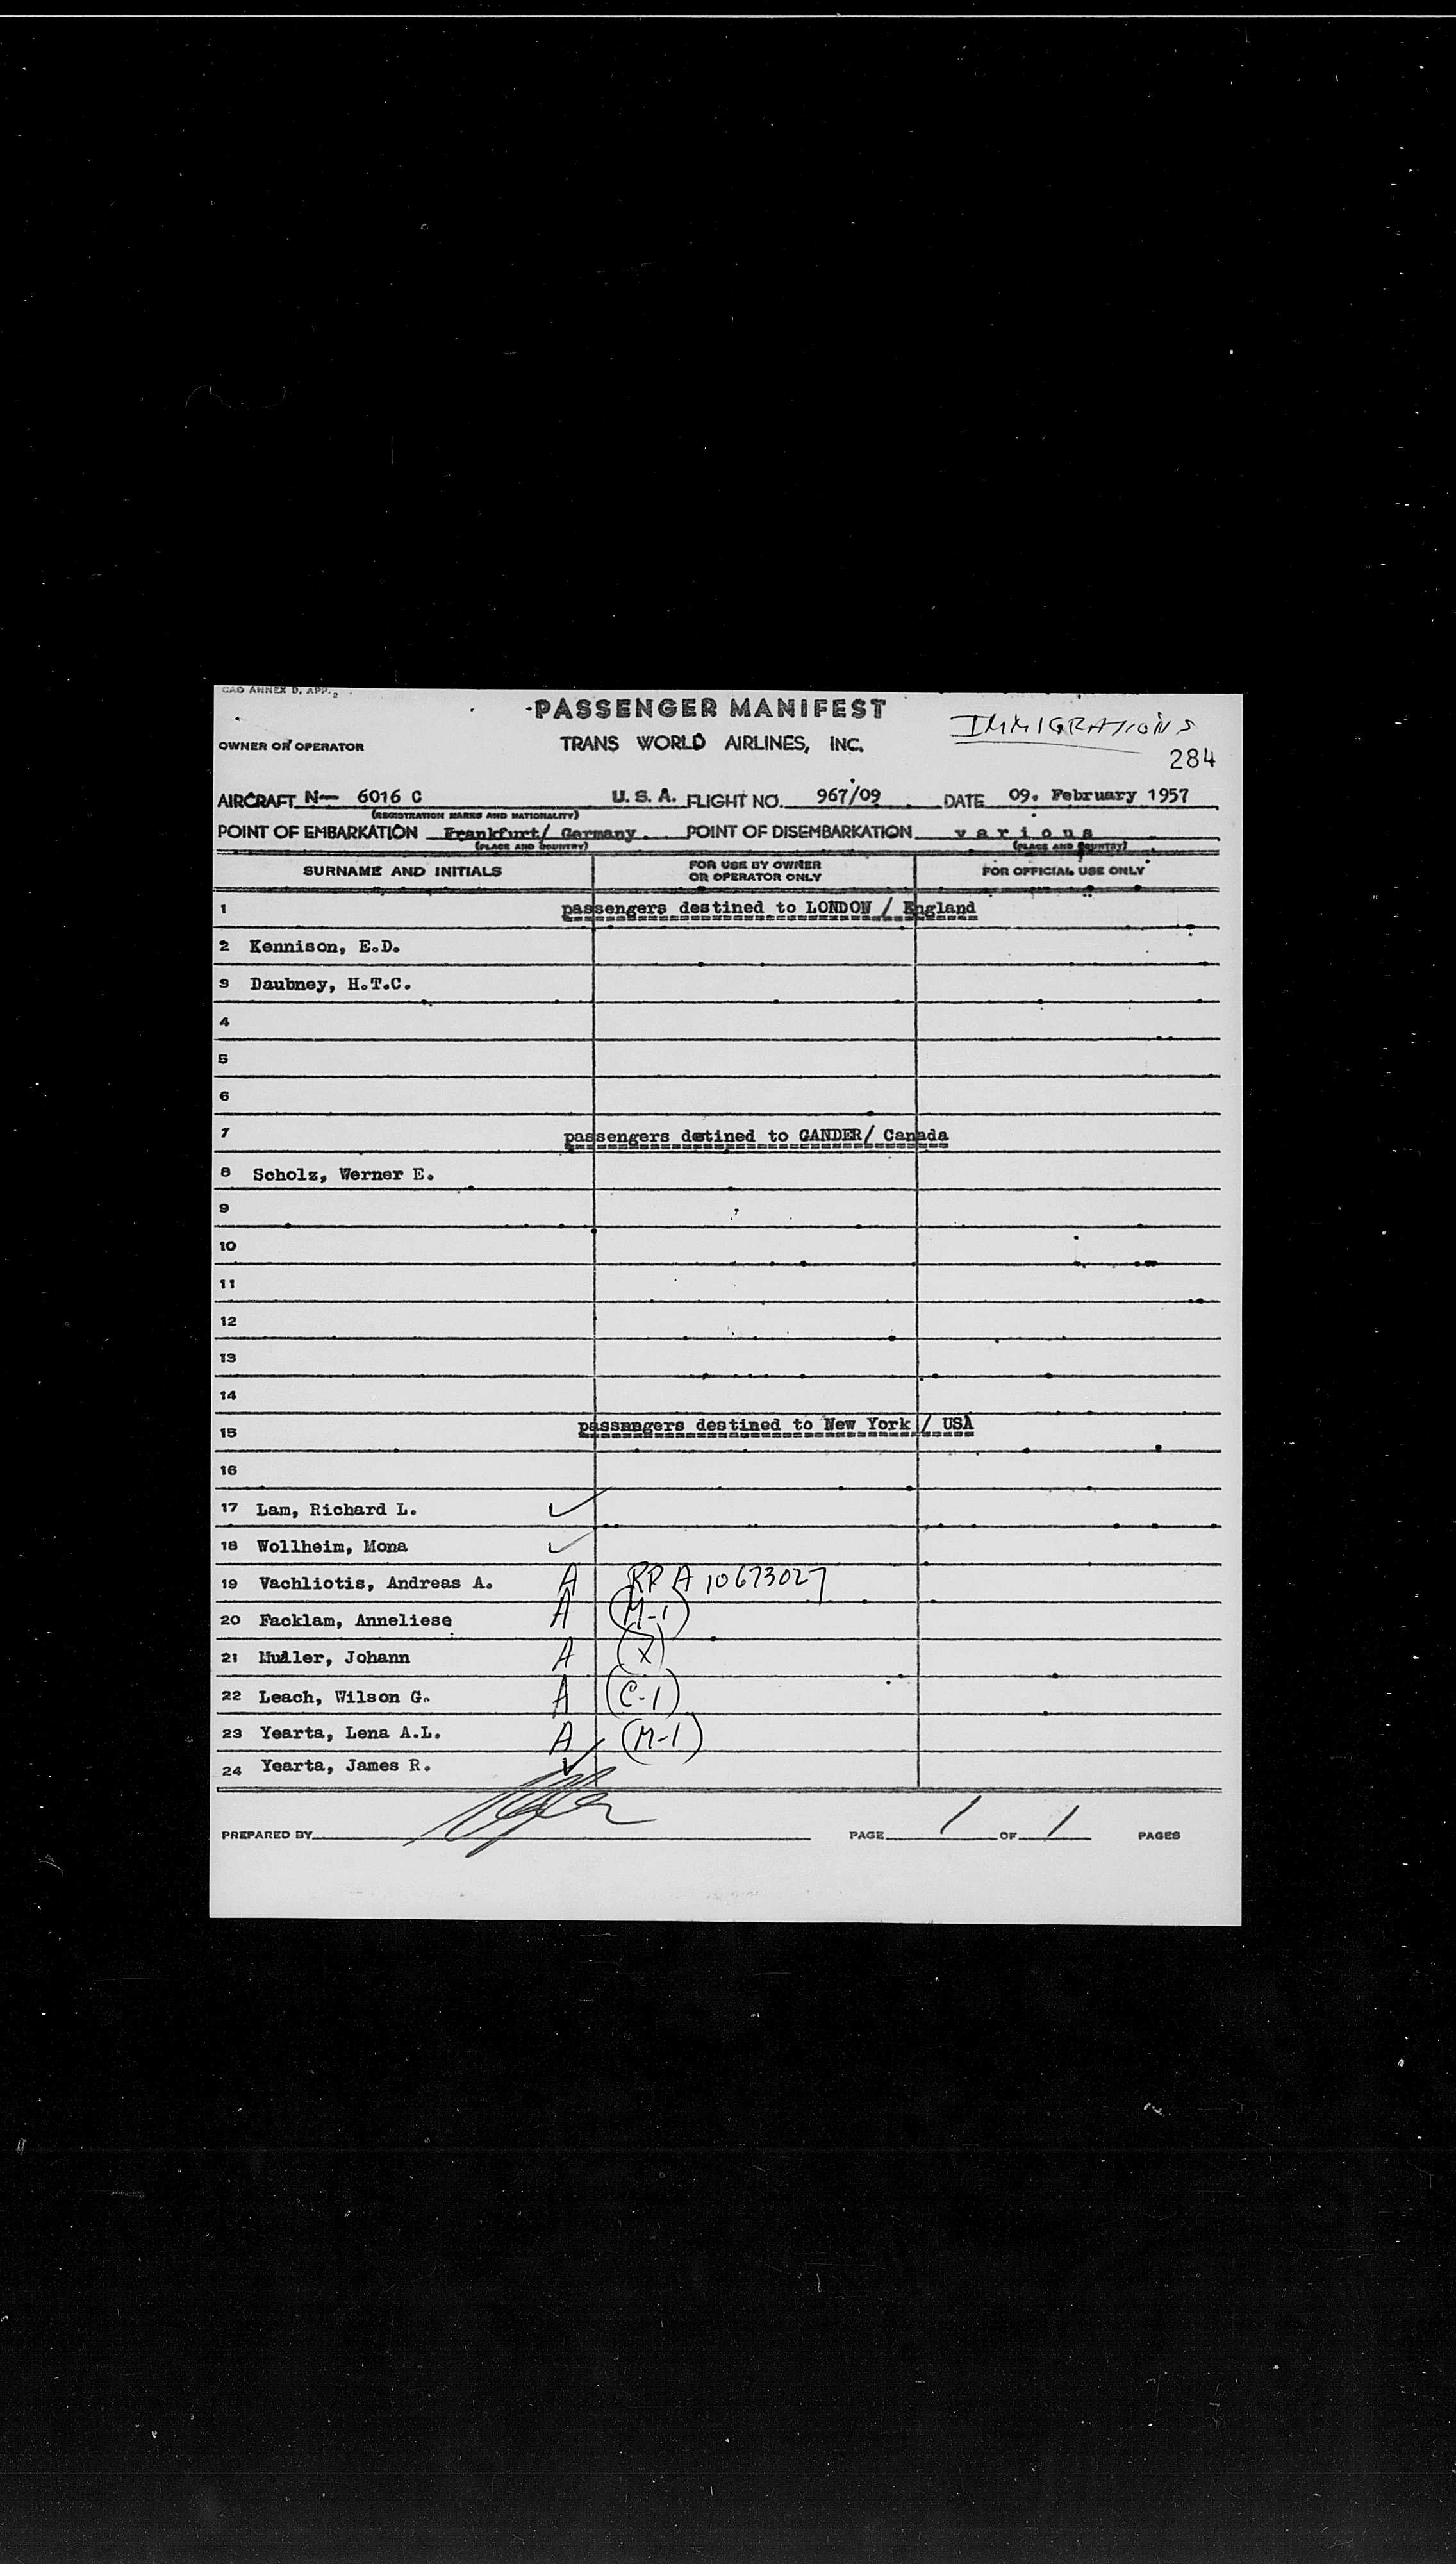 CAO ANNEX D, APP. 2
PASSENGER MANIFEST
IMMIGRATIONS
OWNER OR OPERATOR TRANS WORLD AIRLINES, INC.
284
AIRCRAFT N— 6016 C U. S. A. FLIGHT NO. 967/09 DATE 09. February 1957
(REGISTRATION MARKS AND NATIONALITY)
POINT OF EMBARKATION Frankfurt/ Germany POINT OF DISEMBARKATION v a r i o u s
(PLACE AND COUNTRY) (PLACE AND COUNTRY)
SURNAME AND INITIALS FOR USE BY OWNER OR OPERATOR ONLY FOR OFFICIAL USE ONLY
1 passengers destined to LONDON / England
2 Kennison, E.D.
3 Daubney, H.T.C.
4
5
6
7 passengers detined to GANDER/ Canada
8 Scholz, Werner E.
9
10
11
12
13
14
15 passsngers destined to New York / USA
16
17 Lam, Richard L. ✓
18 Wollheim, Mona ✓
19 Vachliotis, Andreas A. A RP A 10673027
20 Facklam, Anneliese A (M-1)
21 Muller, Johann A (X)
22 Leach, Wilson G. A (C-1)
23 Yearta, Lena A.L. A (M-1)
24 Yearta, James R. ✓
PREPARED BY PAGE 1 OF 1 PAGES